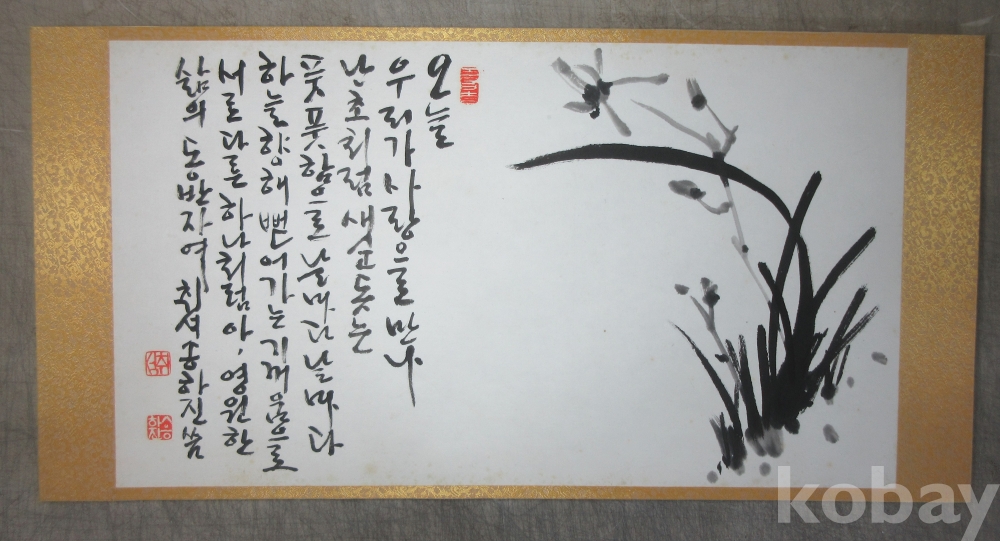 오늘
우리가 사랑으로 만나
난초처럼 새순 돋는
풋풋함으로 날마다 날마다
하늘 향해 뻗어가는 기쁨으로
서로 다른 하나처럼 아, 영원한
삶의 동반자여
kobay